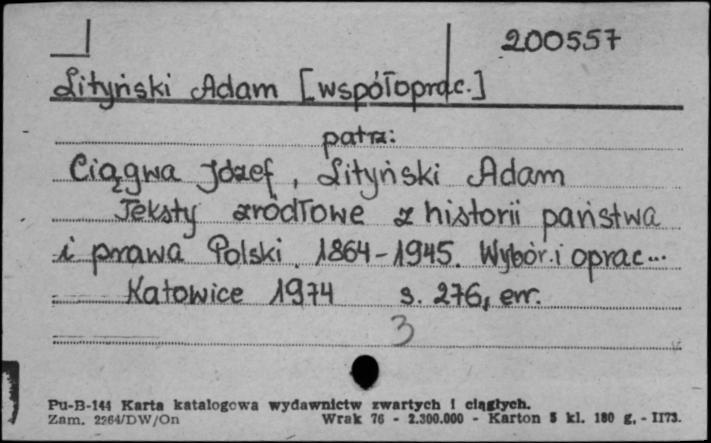 200557
Lityński Adam [współoprac.]
patrz:
Ciągwa Józef, Lityński Adam
Teksty źródłowe z historii państwa
i prawa Polski. 1864-1945. Wybór i oprac...
Katowice 1974 s. 276, err.
3
Pu-B-144 Karta katalogowa wydawnictw zwartych i ciągłych.
Zam. 2264/DW/On Wrak 76 - 2.300.000 - Karton 5 kl. 180 g. - II73.